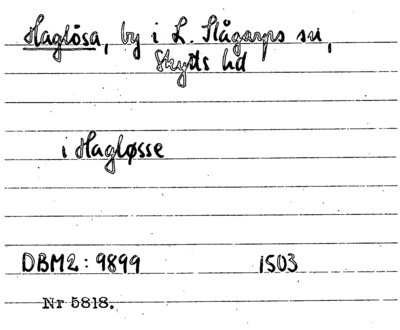 Haglösa, by i L. Slågarps sn,
Skytts hd
i Hagløsse
DBM2: 9899 1503
Nr 5818.